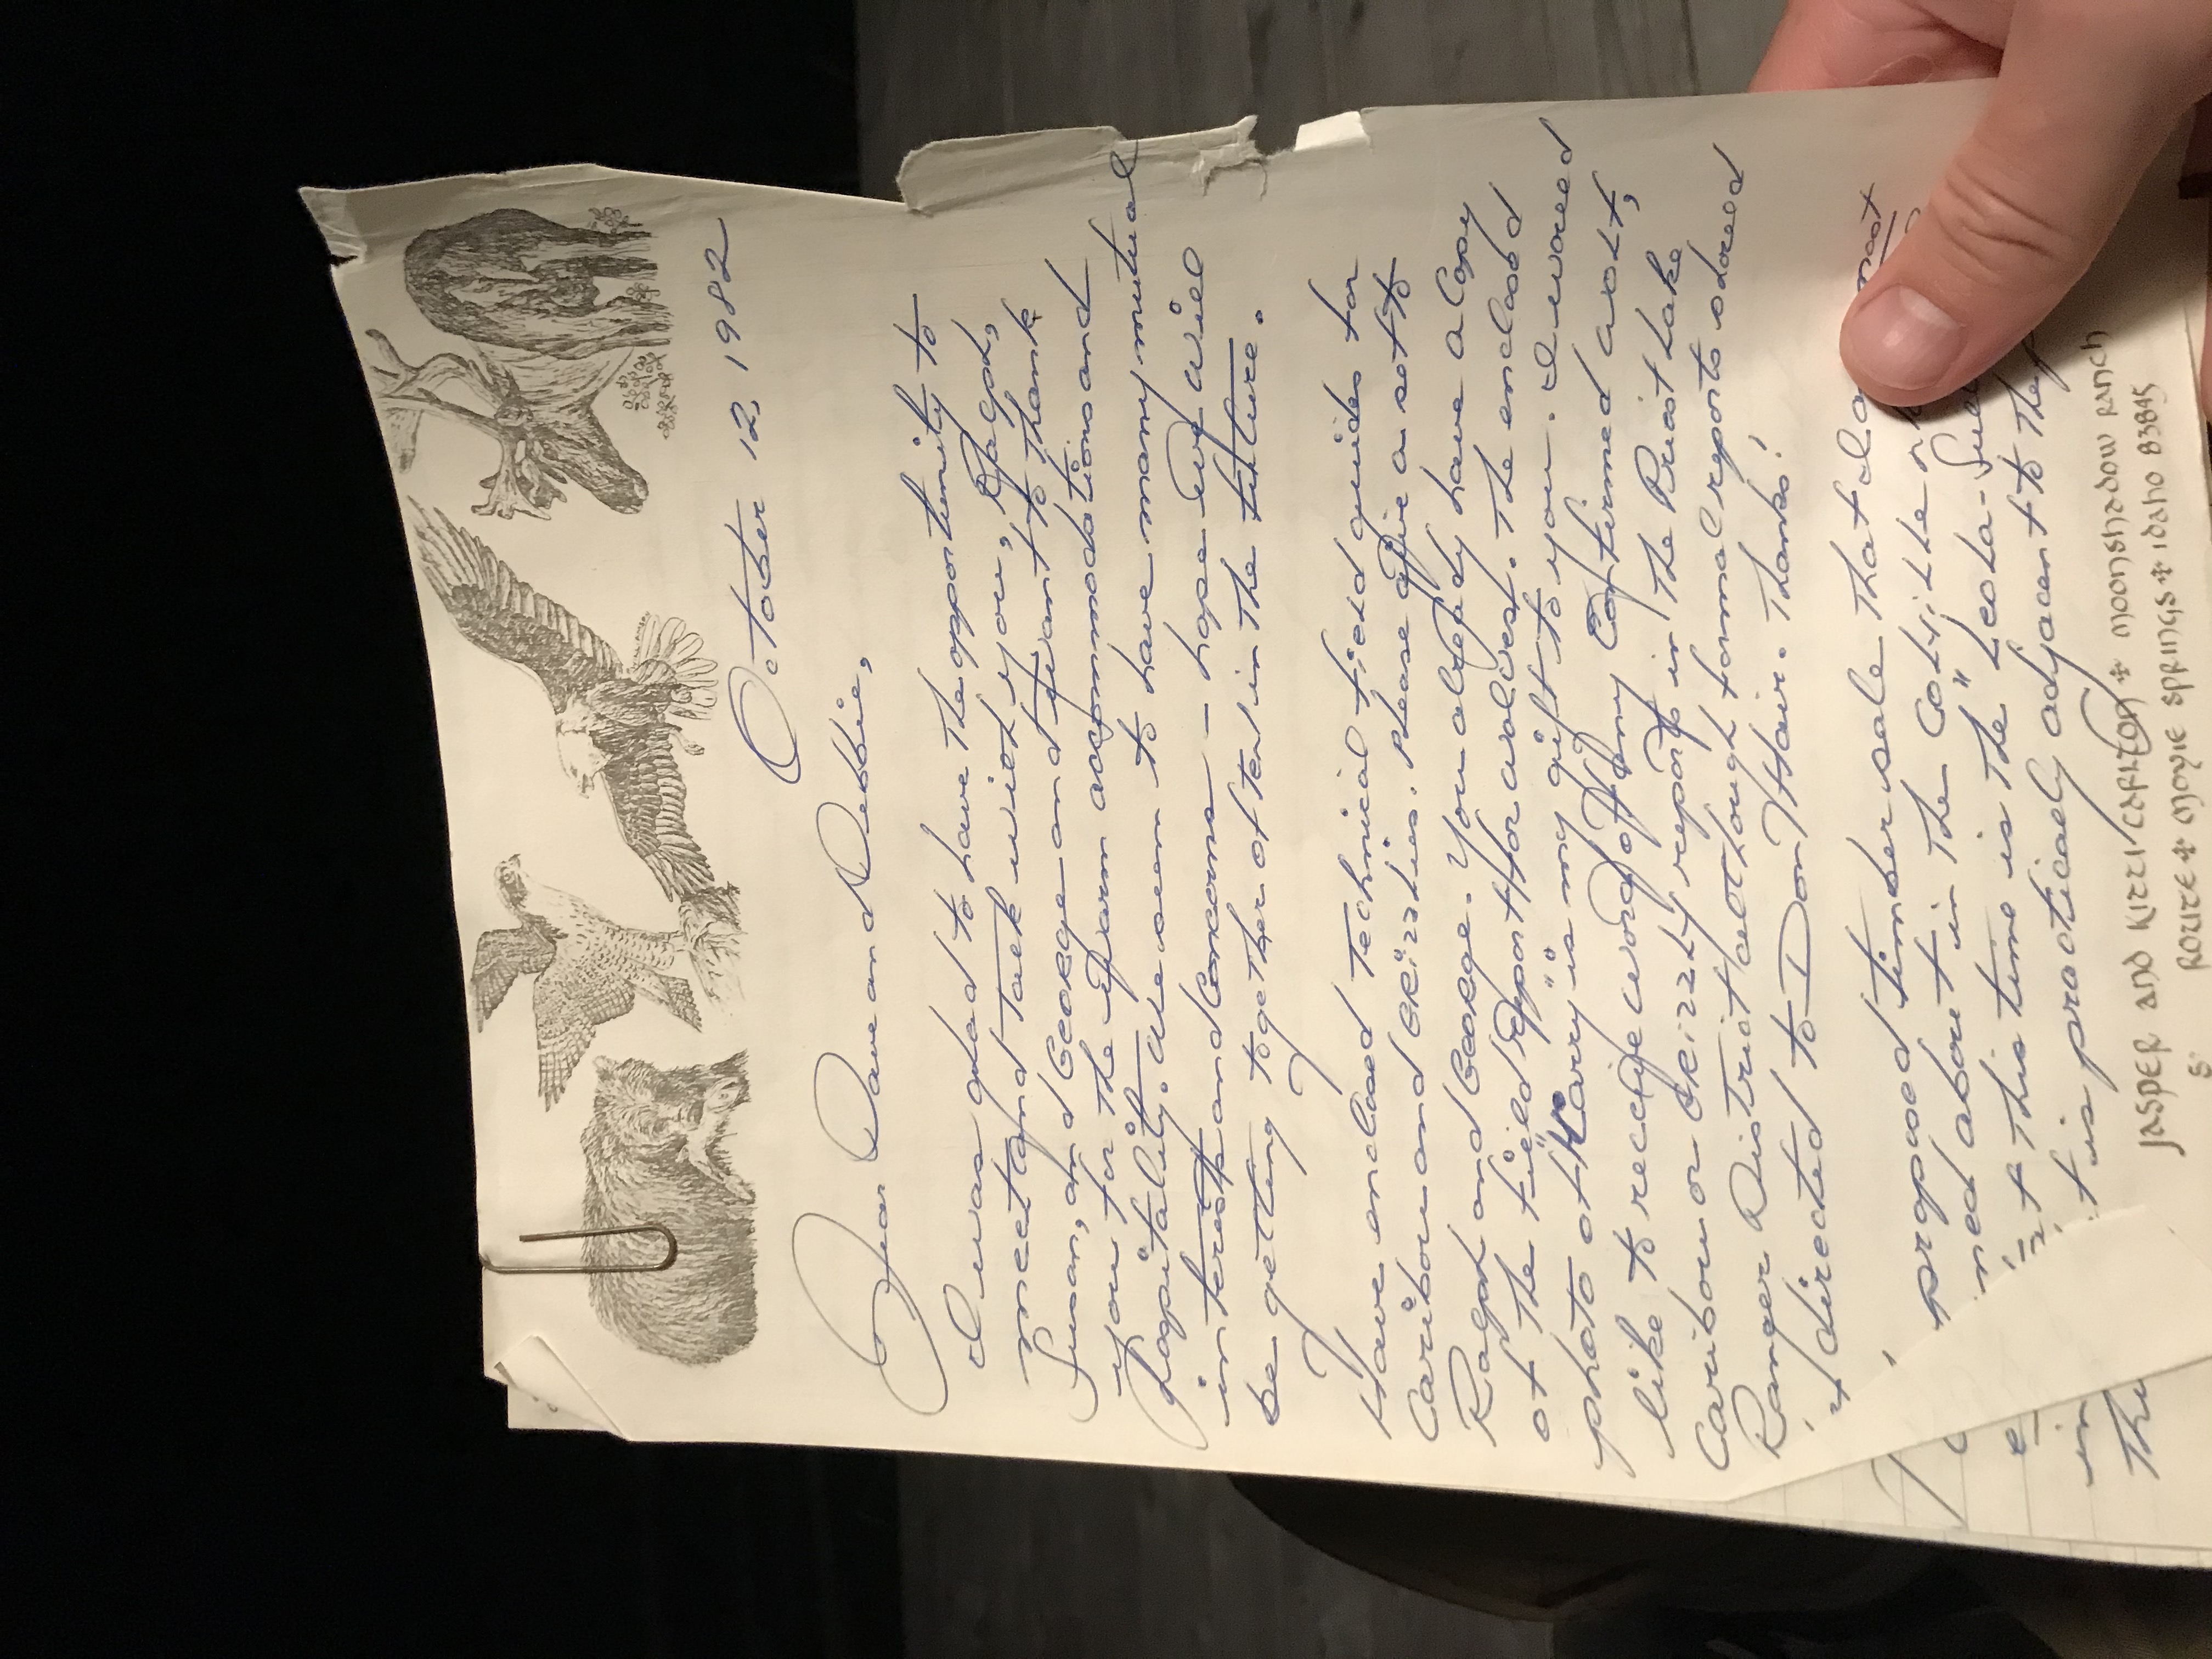 October 12, 1982
Dear Dave and Debbie,
I was glad to have the opportunity to
meet and talk with you, Ralph,
Susan, and George - and I want to thank
you for the warm accommodations and
hospitality. We seem to have many mutual
interests and concerns - hope we will
be getting together often in the future.
Have enclosed technical field guides for
Caribou and Grizzlies. Please give a set to
Ralph and George. You already have a copy
of the field report for wolves. The enclosed
photo of "Harry" is my gift to you. I would
like to receive word of any confirmed wolf,
Caribou or Grizzly reports in the Priest Lake
Ranger District although formal reports should
directed to Don Hair. Thanks!
proposed timber sale that
ned about in the
at this time is the
t is practically adjacent to the
in
JASPER AND KITTI CARLTON * MOONSHADOW RANCH
ROUTE * MOYIE SPRINGS * IDAHO 83845